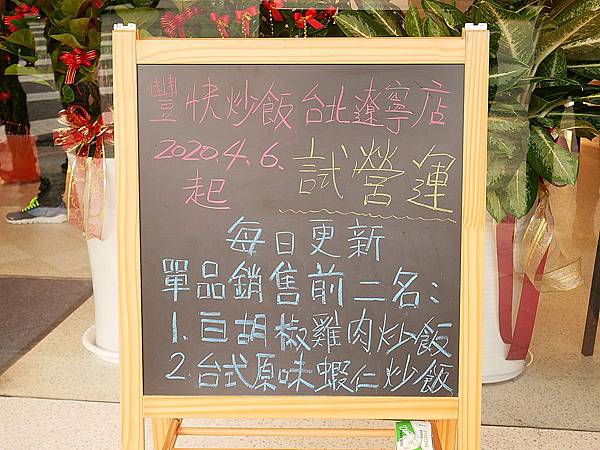 豐快炒飯台北遼寧店
2020.4.6.
起
試營運
每日更新
單品銷售前二名：
1.白胡椒雞肉炒飯
2.台式原味蝦仁炒飯